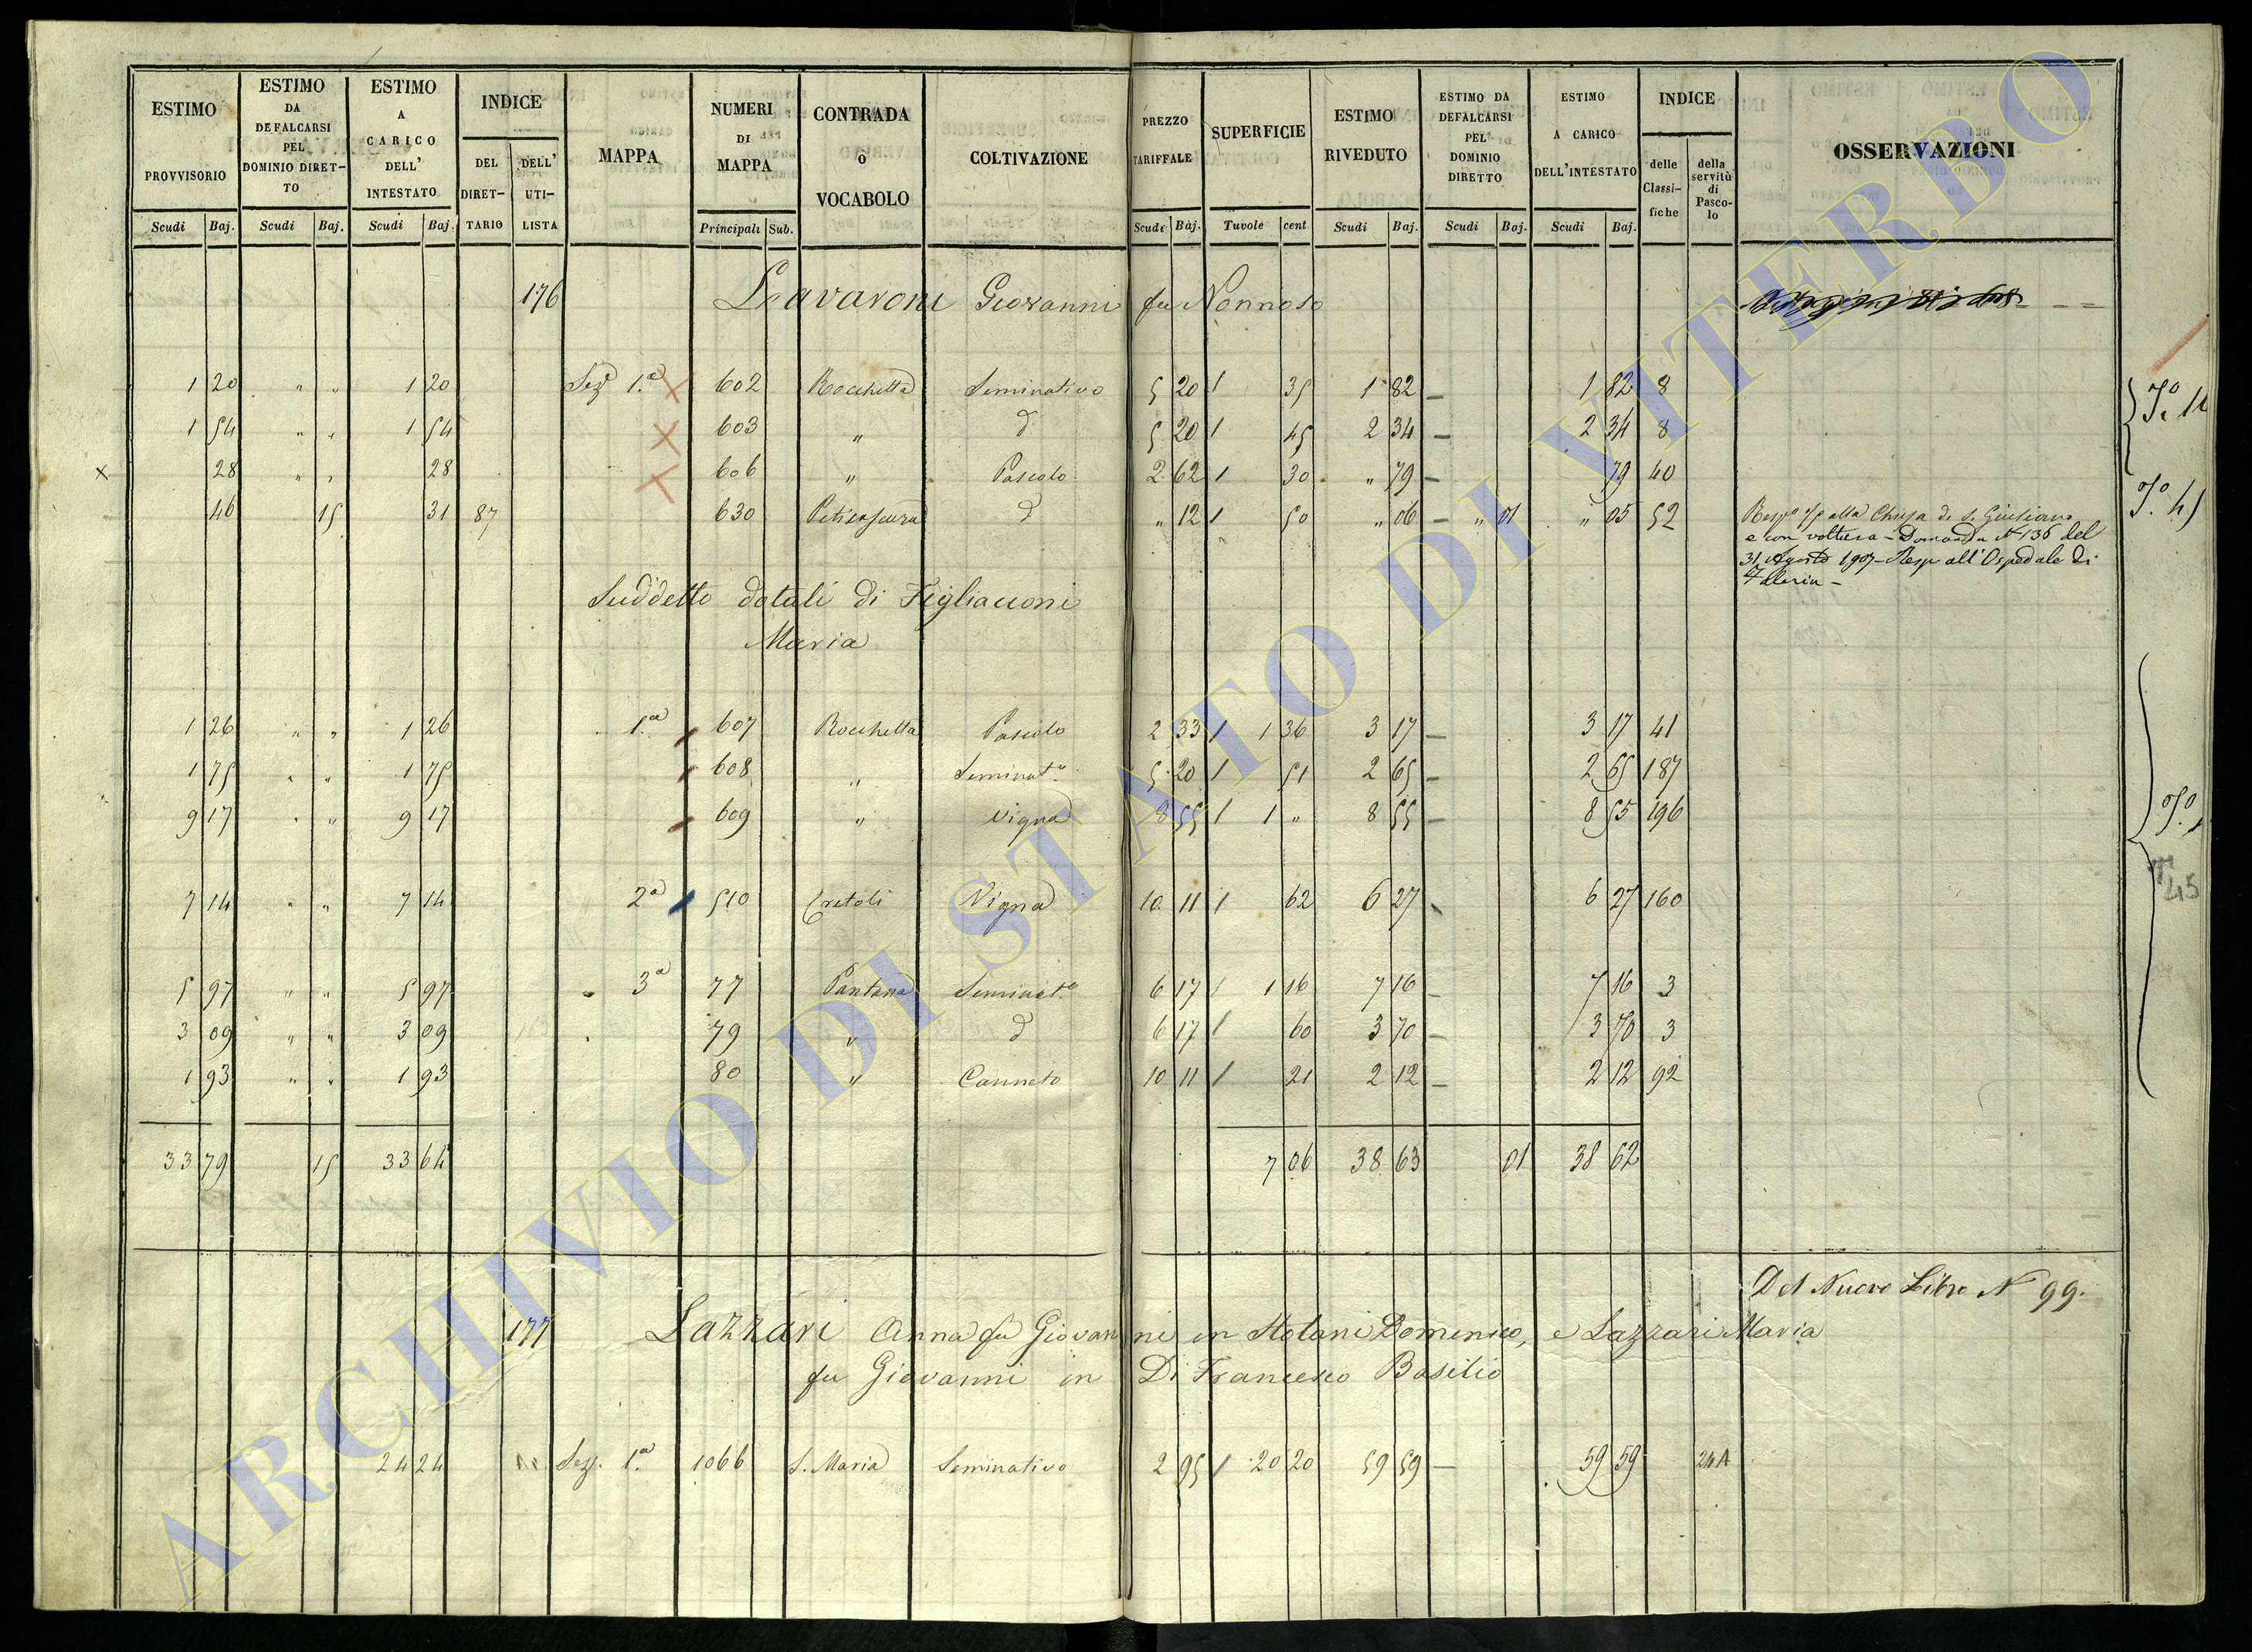 ESTIMO PROVVISORIO Scudi Baj. ESTIMO DA DEFALCARSI PEL DOMINIO DIRETTO Scudi Baj. ESTIMO A CARICO DELL' INTESTATO Scudi Baj. INDICE DEL DIRETTARIO DELL' UTILISTA MAPPA NUMERI DI MAPPA Principali Sub. CONTRADA O VOCABOLO COLTIVAZIONE PREZZO TARIFFALE Scudi Baj. SUPERFICIE Tavole cent ESTIMO RIVEDUTO Scudi Baj. ESTIMO DA DEFALCARSI PEL DOMINIO DIRETTO Scudi Baj. ESTIMO A CARICO DELL'INTESTATO Scudi Baj. INDICE delle Classifiche della servitù di Pascolo OSSERVAZIONI
176 Lavaroni Giovanni fu Nonnoso
1 20 " " 1 20 Sez. 1.a 602 Rocchetta Seminativo 5 20 / 35 1 82 – 1 82 8
1 54 " " 1 54 603 " d 5 20 / 45 2 34 – 2 34 8
28 " " 28 606 " Pascolo 2 62 / 30 " 79 – 79 40
46 15 31 87 630 d " 12 / 50 " 06 – " 01 " 05 52
alla Chiesa di S. Giuliano
e con voltura – Domanda N 136 del
31 Agosto 1907 – Resp all'Ospedale di
Faleria –
Suddetto dotali di Figliacconi
Maria
1 26 " " 1 26 1.a 607 Rocchetta Pascolo 2 33 / 1 36 3 17 – 3 17 41
1 75 " " 1 75 608 " Seminat.o 5 20 / 51 2 65 – 2 65 187
9 17 " " 9 17 609 " Vigna 8 55 / 1 " 8 55 – 8 55 196
7 14 " " 7 14 2a 510 Cretoli Vigna 10 11 / 62 6 27 – 6 27 160
5 97 " " 5 97 3a 77 Pantana Seminat.o 6 17 / 1 16 7 16 – 7 16 3
3 09 " " 3 09 79 " d 6 17 / 60 3 70 – 3 70 3
1 93 " " 1 93 80 " Canneto 10 11 / 21 2 12 – 2 12 92
33 79 15 33 64 7 06 38 63 01 38 62
Del Nuovo Libro N 99.
177 Lazzari Anna fu Giovanni in Stolani Domenico, e Lazzari Maria
fu Giovanni in Di Francesco Basilio
24 24 Sez. 1.a 1066 S. Maria Seminativo 2 95 / 20 20 59 59 – 59 59 24A
45
ARCHIVIO DI STATO DI VITERBO